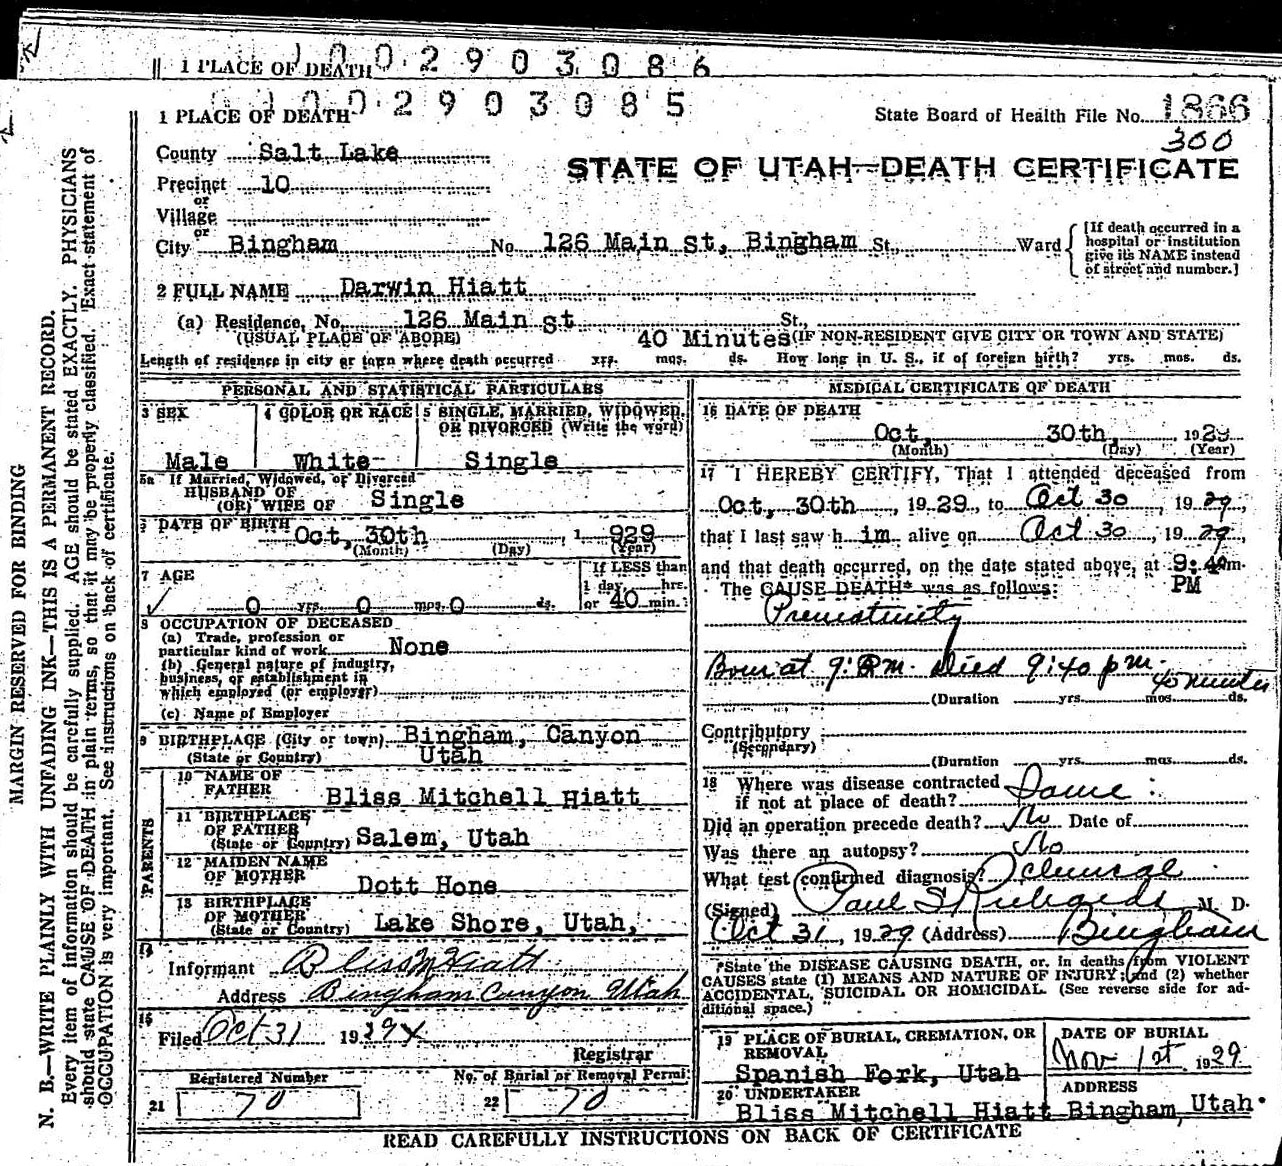 1 PLACE OF DEATH 1002903086
1 PLACE OF DEATH 1002903085
State Board of Health File No. 1866
300
County Salt Lake
STATE OF UTAH—DEATH CERTIFICATE
Precinct 10
or
Village
or
City Bingham No. 126 Main st, Bingham St. Ward
[If death occurred in a
hospital or institution
give its NAME instead
of street and number.]
2 FULL NAME Darwin Hiatt
(a) Residence, No. 126 Main st St.
(USUAL PLACE OF ABODE) 40 Minutes (IF NON-RESIDENT GIVE CITY OR TOWN AND STATE)
Length of residence in city or town where death occurred yrs. mos. ds. How long in U. S., if of foreign birth? yrs. mos. ds.
PERSONAL AND STATISTICAL PARTICULARS
3 SEX
Male
4 COLOR OR RACE
White
5 SINGLE, MARRIED, WIDOWED,
OR DIVORCED (Write the word)
Single
5a If Married, Widowed, or Divorced
HUSBAND OF
(OR) WIFE OF Single
6 DATE OF BIRTH Oct, 30th, 1 929
(Month) (Day) (Year)
7 AGE
0 yrs. 0 mos. 0 ds.
If LESS than
1 day hrs.
or 40 min.
8 OCCUPATION OF DECEASED
(a) Trade, profession or
particular kind of work None
(b) General nature of industry,
business, or establishment in
which employed (or employer)
(c) Name of Employer
9 BIRTHPLACE (City or town) Bingham, Canyon
(State or Country) Utah
PARENTS
10 NAME OF
FATHER Bliss Mitchell Hiatt
11 BIRTHPLACE
OF FATHER
(State or Country) Salem, Utah
12 MAIDEN NAME
OF MOTHER Dott Hone
13 BIRTHPLACE
OF MOTHER
(State or Country) Lake Shore, Utah,
14
Informant Bliss M Hiatt
Address Bingham Canyon Utah
15
Filed Oct 31 1929
Registrar
Registered Number
21 70
No. of Burial or Removal Permit
22 70
MEDICAL CERTIFICATE OF DEATH
16 DATE OF DEATH
Oct, 30th, 1929
(Month) (Day) (Year)
17 I HEREBY CERTIFY, That I attended deceased from
Oct, 30th, 1929, to Oct 30, 1929,
that I last saw him alive on Oct 30, 1929,
and that death occurred, on the date stated above, at 9:40m.
PM
The CAUSE DEATH* was as follows:
Prematurity
Born at 9: P.M. Died 9:40 p m.
40 minutes
(Duration yrs. mos. ds.
Contributory
(Secondary)
(Duration yrs. mos. ds.
18 Where was disease contracted
if not at place of death? Same
Did an operation precede death? No Date of
Was there an autopsy? No
What test confirmed diagnosis? Clinical
(Signed) Paul S Richards M. D.
Oct 31, 1929 (Address) Bingham
*State the DISEASE CAUSING DEATH, or, in deaths from VIOLENT
CAUSES state (1) MEANS AND NATURE OF INJURY; and (2) whether
ACCIDENTAL, SUICIDAL OR HOMICIDAL. (See reverse side for ad-
ditional space.)
19 PLACE OF BURIAL, CREMATION, OR
REMOVAL
Spanish Fork, Utah
DATE OF BURIAL
Nov 1st, 1929
20 UNDERTAKER
Bliss Mitchell Hiatt
ADDRESS
Bingham, Utah.
READ CAREFULLY INSTRUCTIONS ON BACK OF CERTIFICATE
MARGIN RESERVED FOR BINDING
N. B.—WRITE PLAINLY WITH UNFADING INK—THIS IS A PERMANENT RECORD.
Every item of information should be carefully supplied. AGE should be stated EXACTLY. PHYSICIANS
should state CAUSE OF DEATH in plain terms, so that it may be properly classified. Exact statement of
OCCUPATION is very important. See instructions on back of certificate.